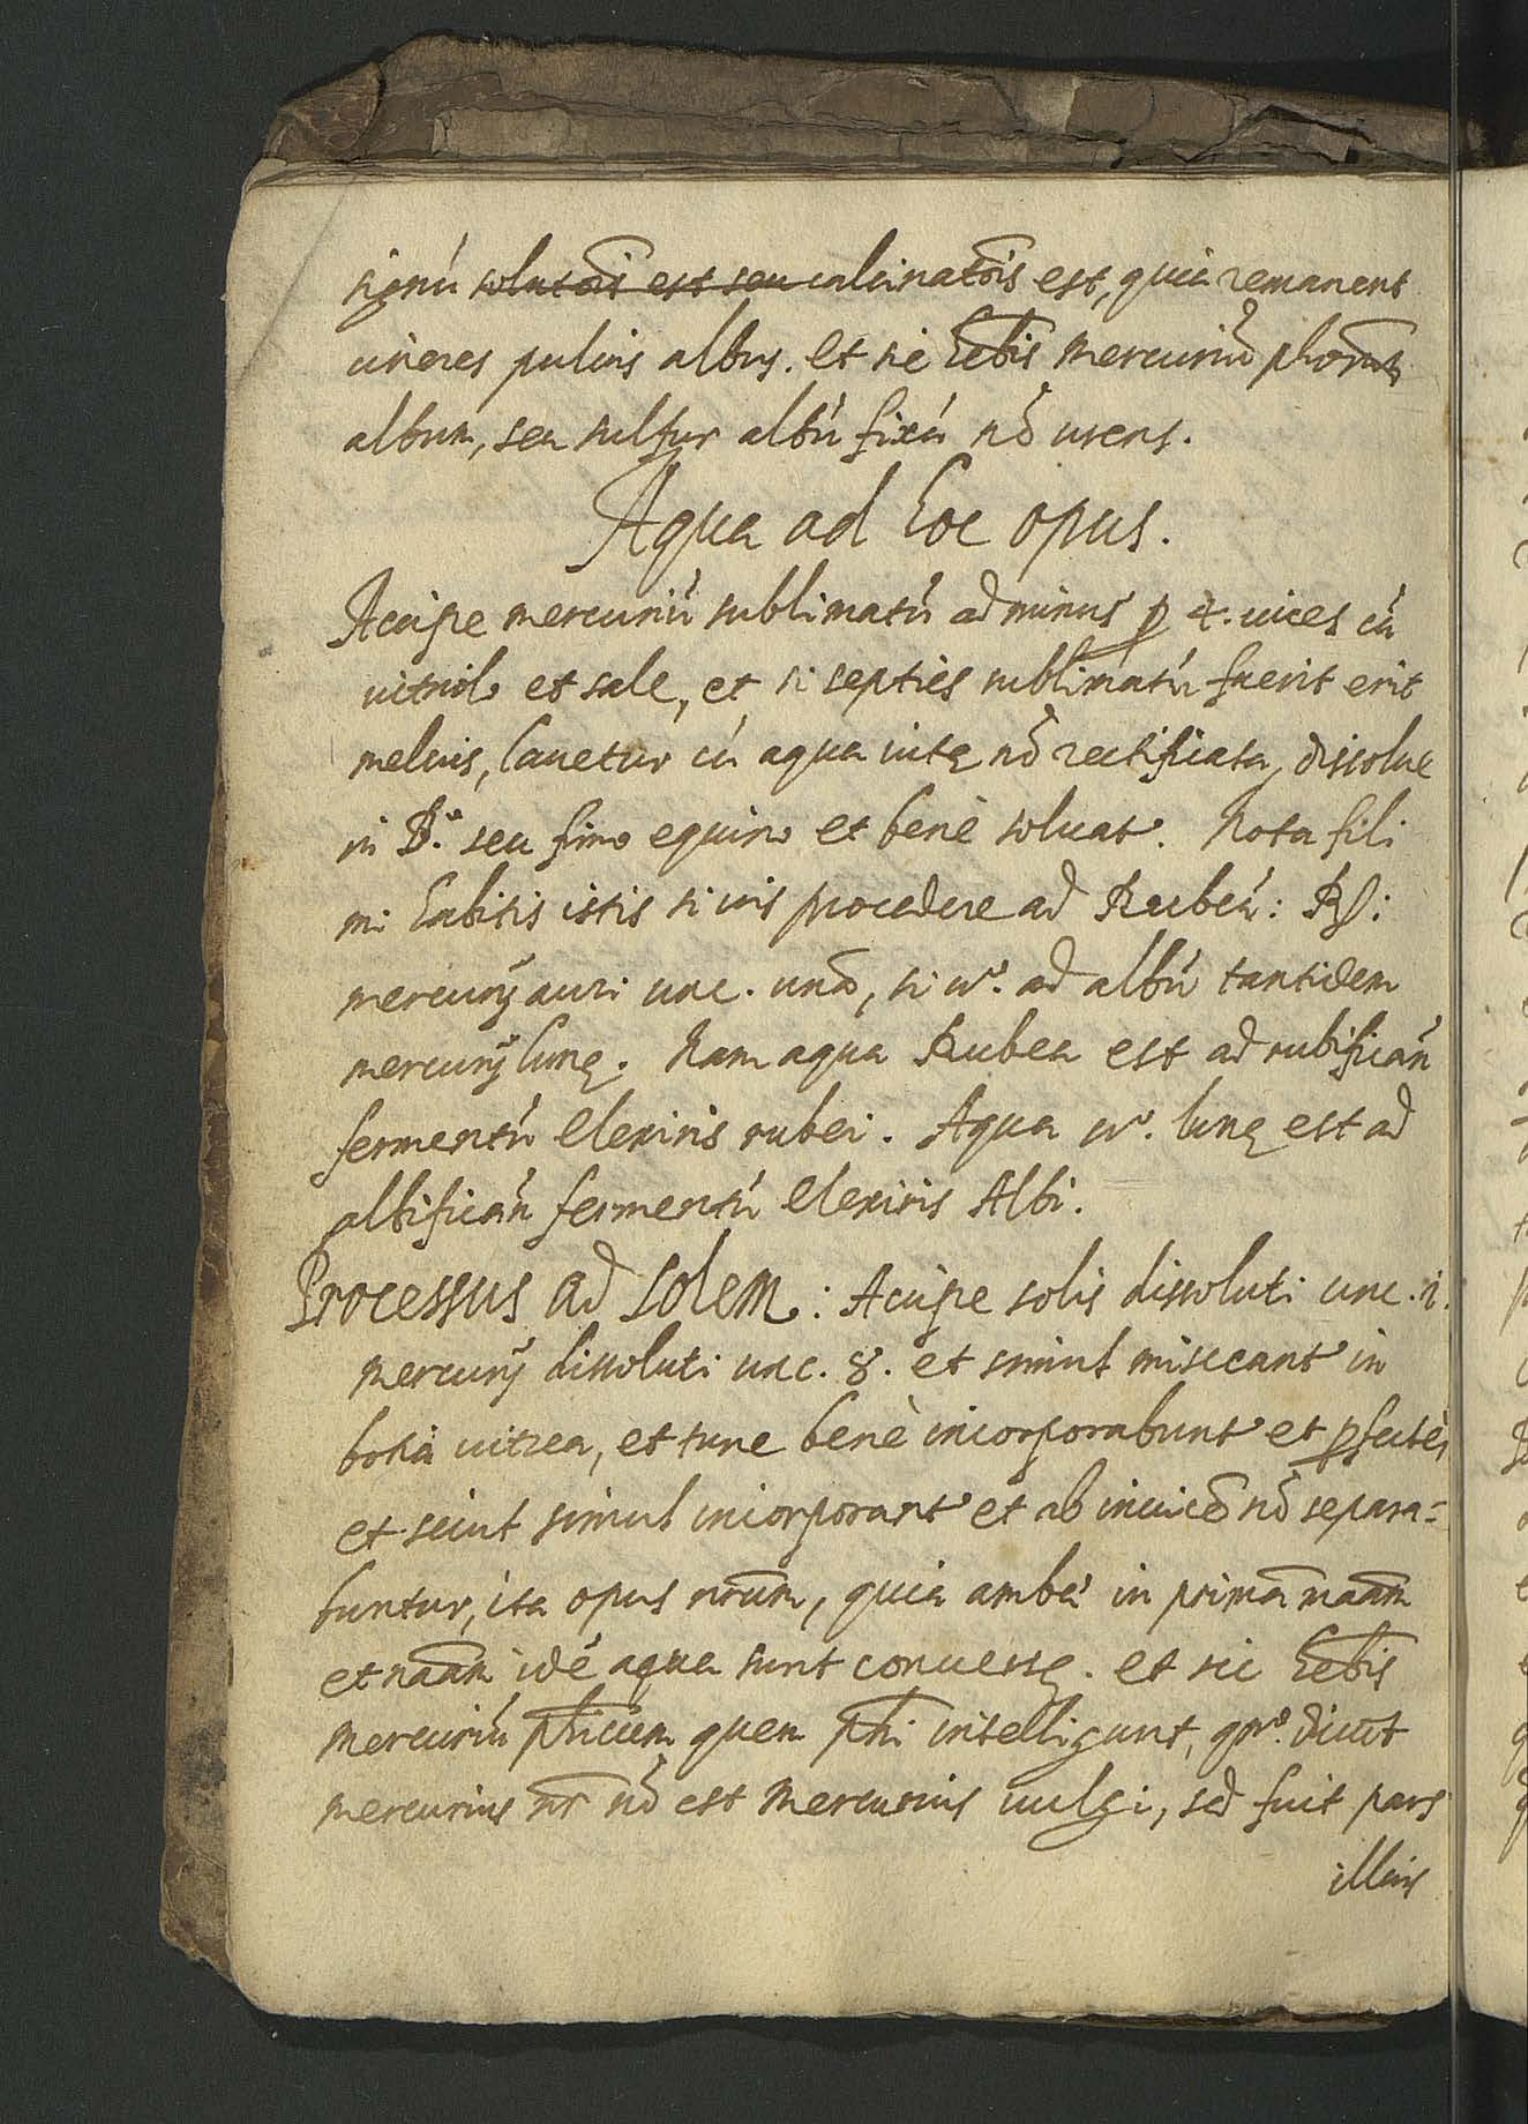 signú solutois est seu calcinatōis est, quia remanent
cineres puluis albus. et sic hēbis mercuriū phorum
album, seu sulfur albú fixú nō urens.
Aqua ad hoc opus.
Accipe mercuriú sublimatú ad minus p 4. uices cú
uitriolo et sale, et si septies sublimatú fuerit erit
melius, lauetur cú aqua uitę nō rectificata, dissolue
in B.º seu fimo equino et benè soluat.r Nota fili
mi habitis istis si uis procedere ad Rubeú: R:
mercurij auri unc. unā, si uº. ad albú tantidem
mercurij lunę. Nam aqua Rubea est ad rubificań
fermentú elexiris rubei. Aqua uº. lunę est ad
albificań fermentú elexiris Albi.
Processus ad solem: Accipe solis dissoluti unc. i.
mercurij dissoluti unc. 8. et simul misceantr in
botia uitrea, et tunc benè incorporabuntr et pfectè,
et sicut simul incorporantr et ab inuicē nō separa=
buntur, ita opus nrūm, quia ambę in primā nāam
et nāam idé aqua sunt conuersę. et sic hēbis
mercuriú phicum quem phi intelligunt, qnº. dicūt
mercurius nr nō est mercurius uulgi, sed fuit pars
illius